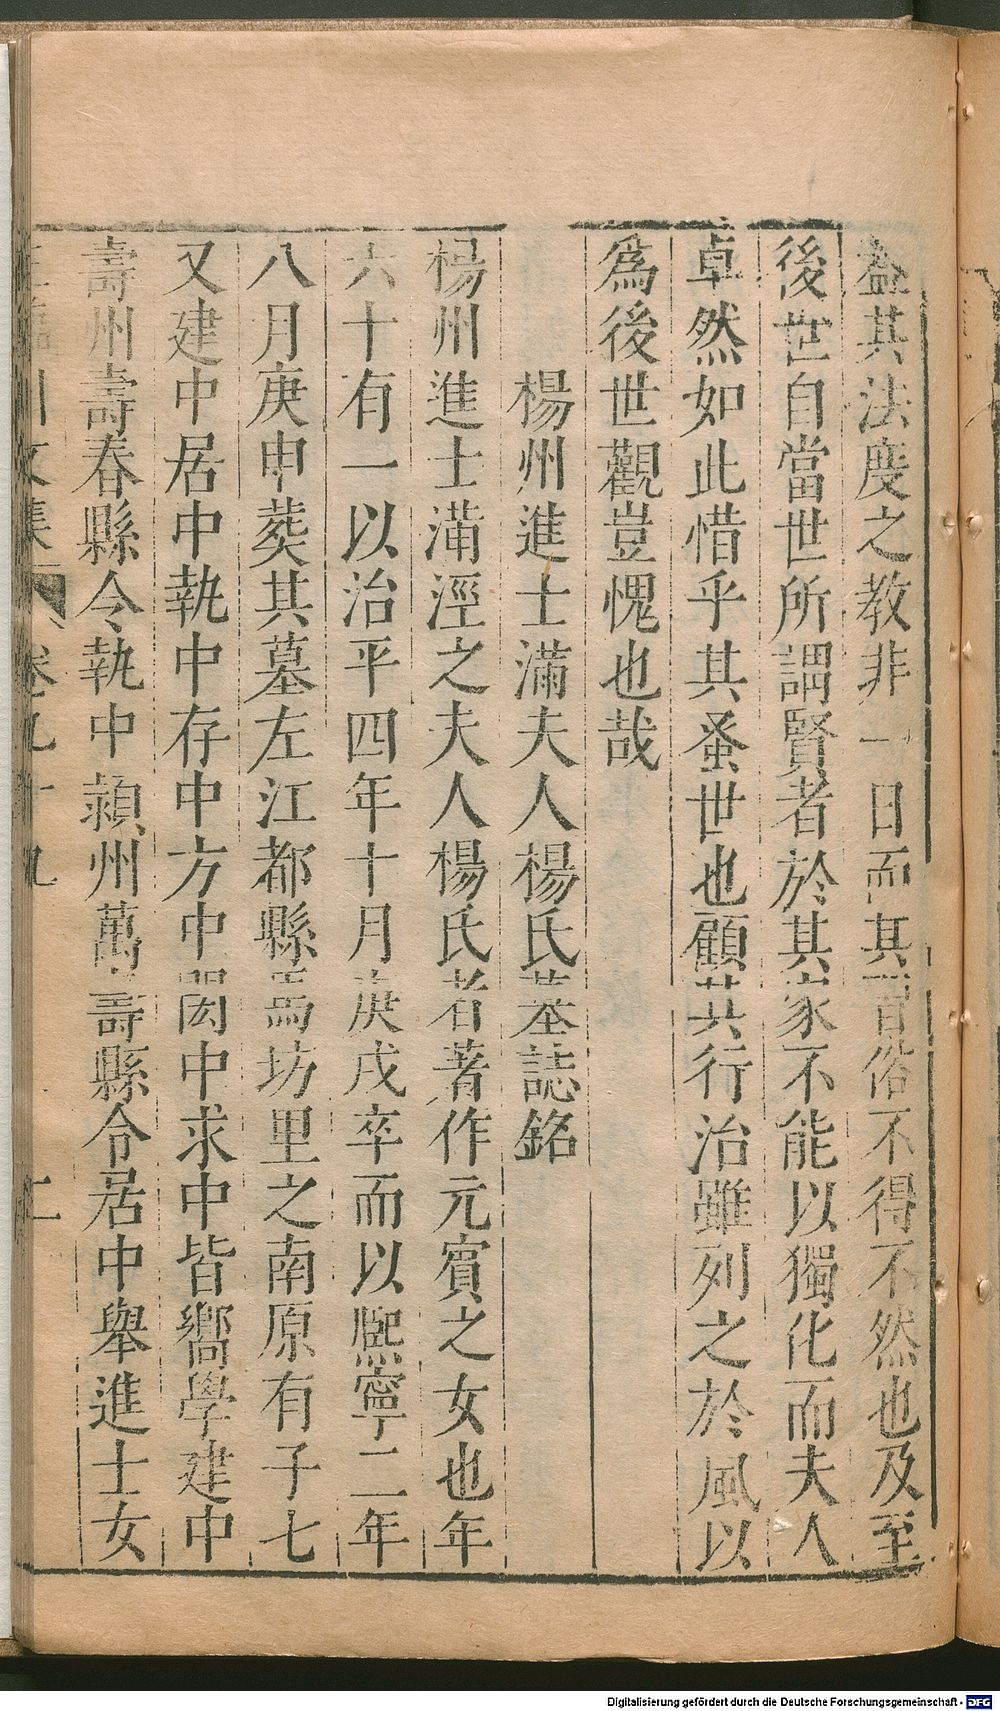 蓋其法度之教非一日而其習俗不得不然也及至
後世自當世所謂賢者於其家不能以獨化而夫人
卓然如此惜乎其蚤世也顧其行治雖列之於風以
爲後世觀豈愧也哉
楊州進士滿夫人楊氏墓誌銘
楊州進士滿涇之夫人楊氏者著作元賓之女也年
六十有一以治平四年十月庚戌卒而以熈寧二年
八月庚申葬其墓左江都縣馬坊里之南原有子七
又建中居中執中存中方中閎中求中皆嚮學建中
壽州壽春縣令執中潁州萬壽縣令居中舉進士女
川文集 卷九十九 二
Digitalisierung gefördert durch die Deutsche Forschungsgemeinschaft - DFG